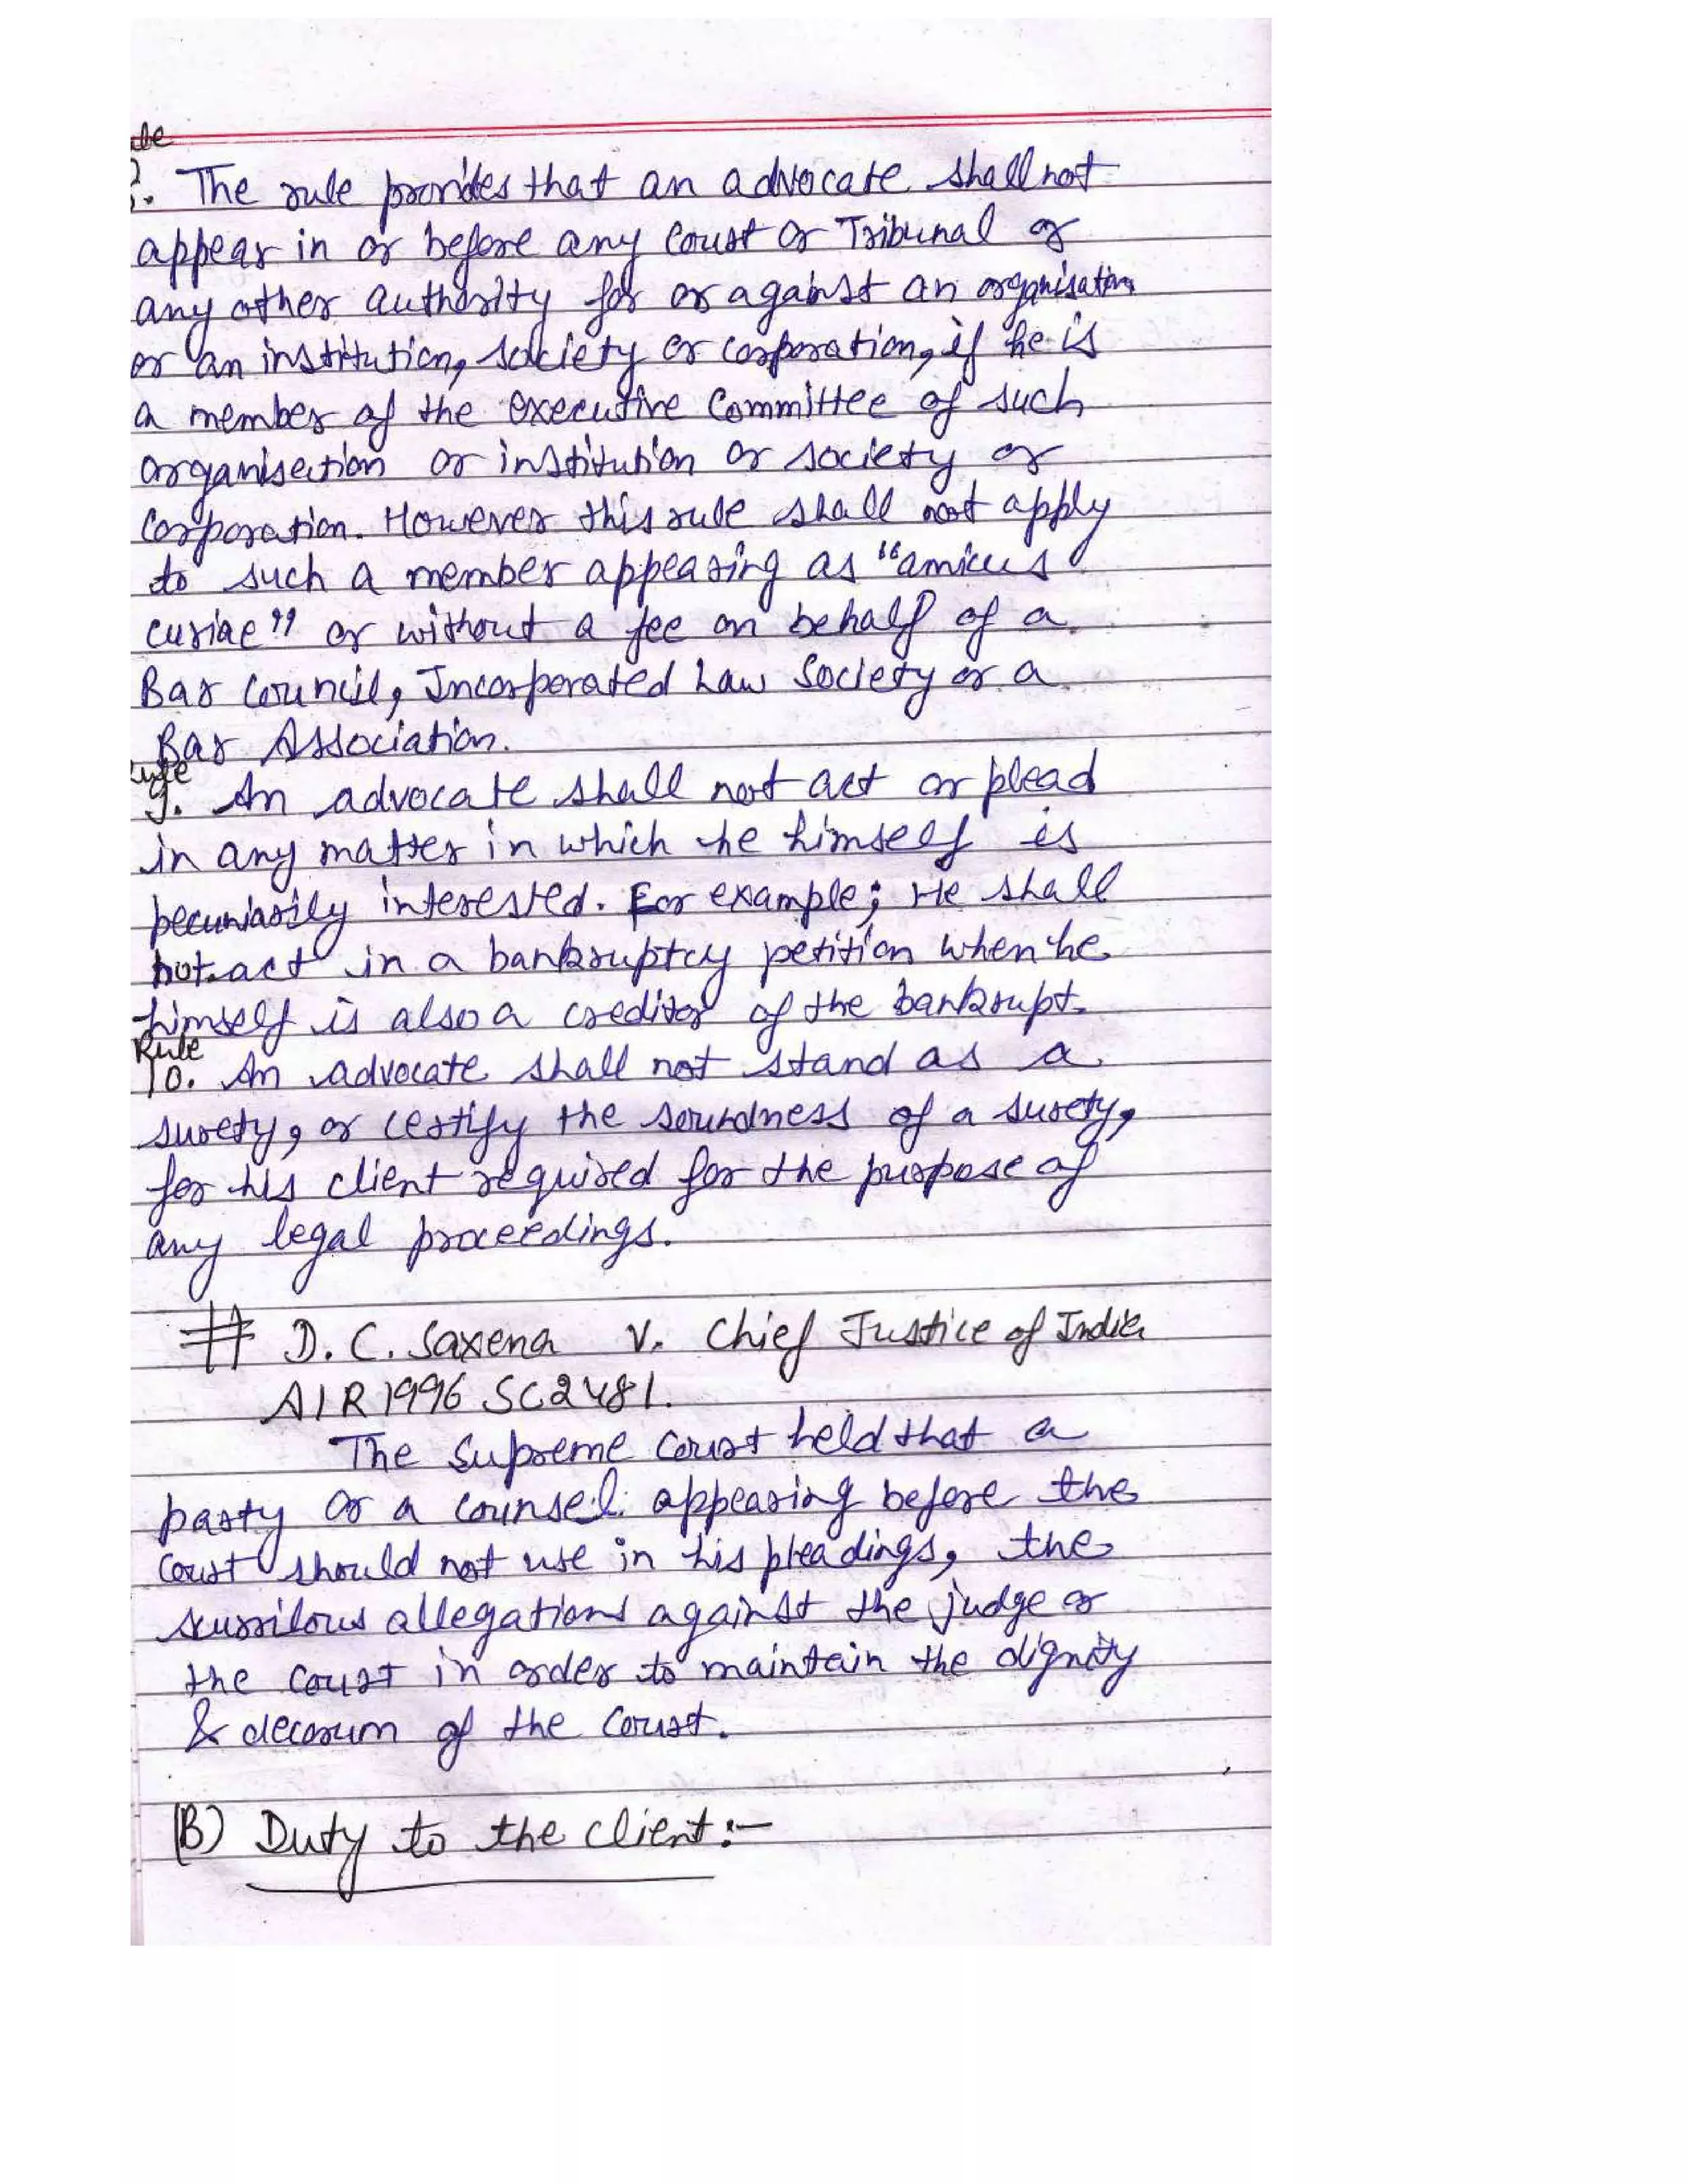 The rule provides that an advocate shall not
appear in or before any Court or Tribunal or
any other authority for or against an organisation
or an institution, society or corporation, if he is
a member of the executive Committee of such
organisation or institution or society or
Corporation. However this rule shall not apply
to such a member appearing as "amicus
curiae" or without a fee on behalf of a
Bar Council, Incorporated Law Society or a
Bar Association.
Rule
9. An advocate shall not act or plead
in any matter in which he himself is
pecuniarily interested. For example; He shall
not act in a bankruptcy petition when he
himself is also a creditor of the bankrupt.
Rule
10. An advocate shall not stand as a
surety, or certify the soundness of a surety,
for his client required for the purpose of
any legal proceedings.
# D. C. Saxena V. Chief Justice of India
AIR 1996 SC 2481.
The Supreme Court held that a
party or a counsel appearing before the
Court should not use in his pleadings, the
scurrilous allegations against the judge or
the Court in order to maintain the dignity
& decorum of the Court.
(B) Duty to the client:-